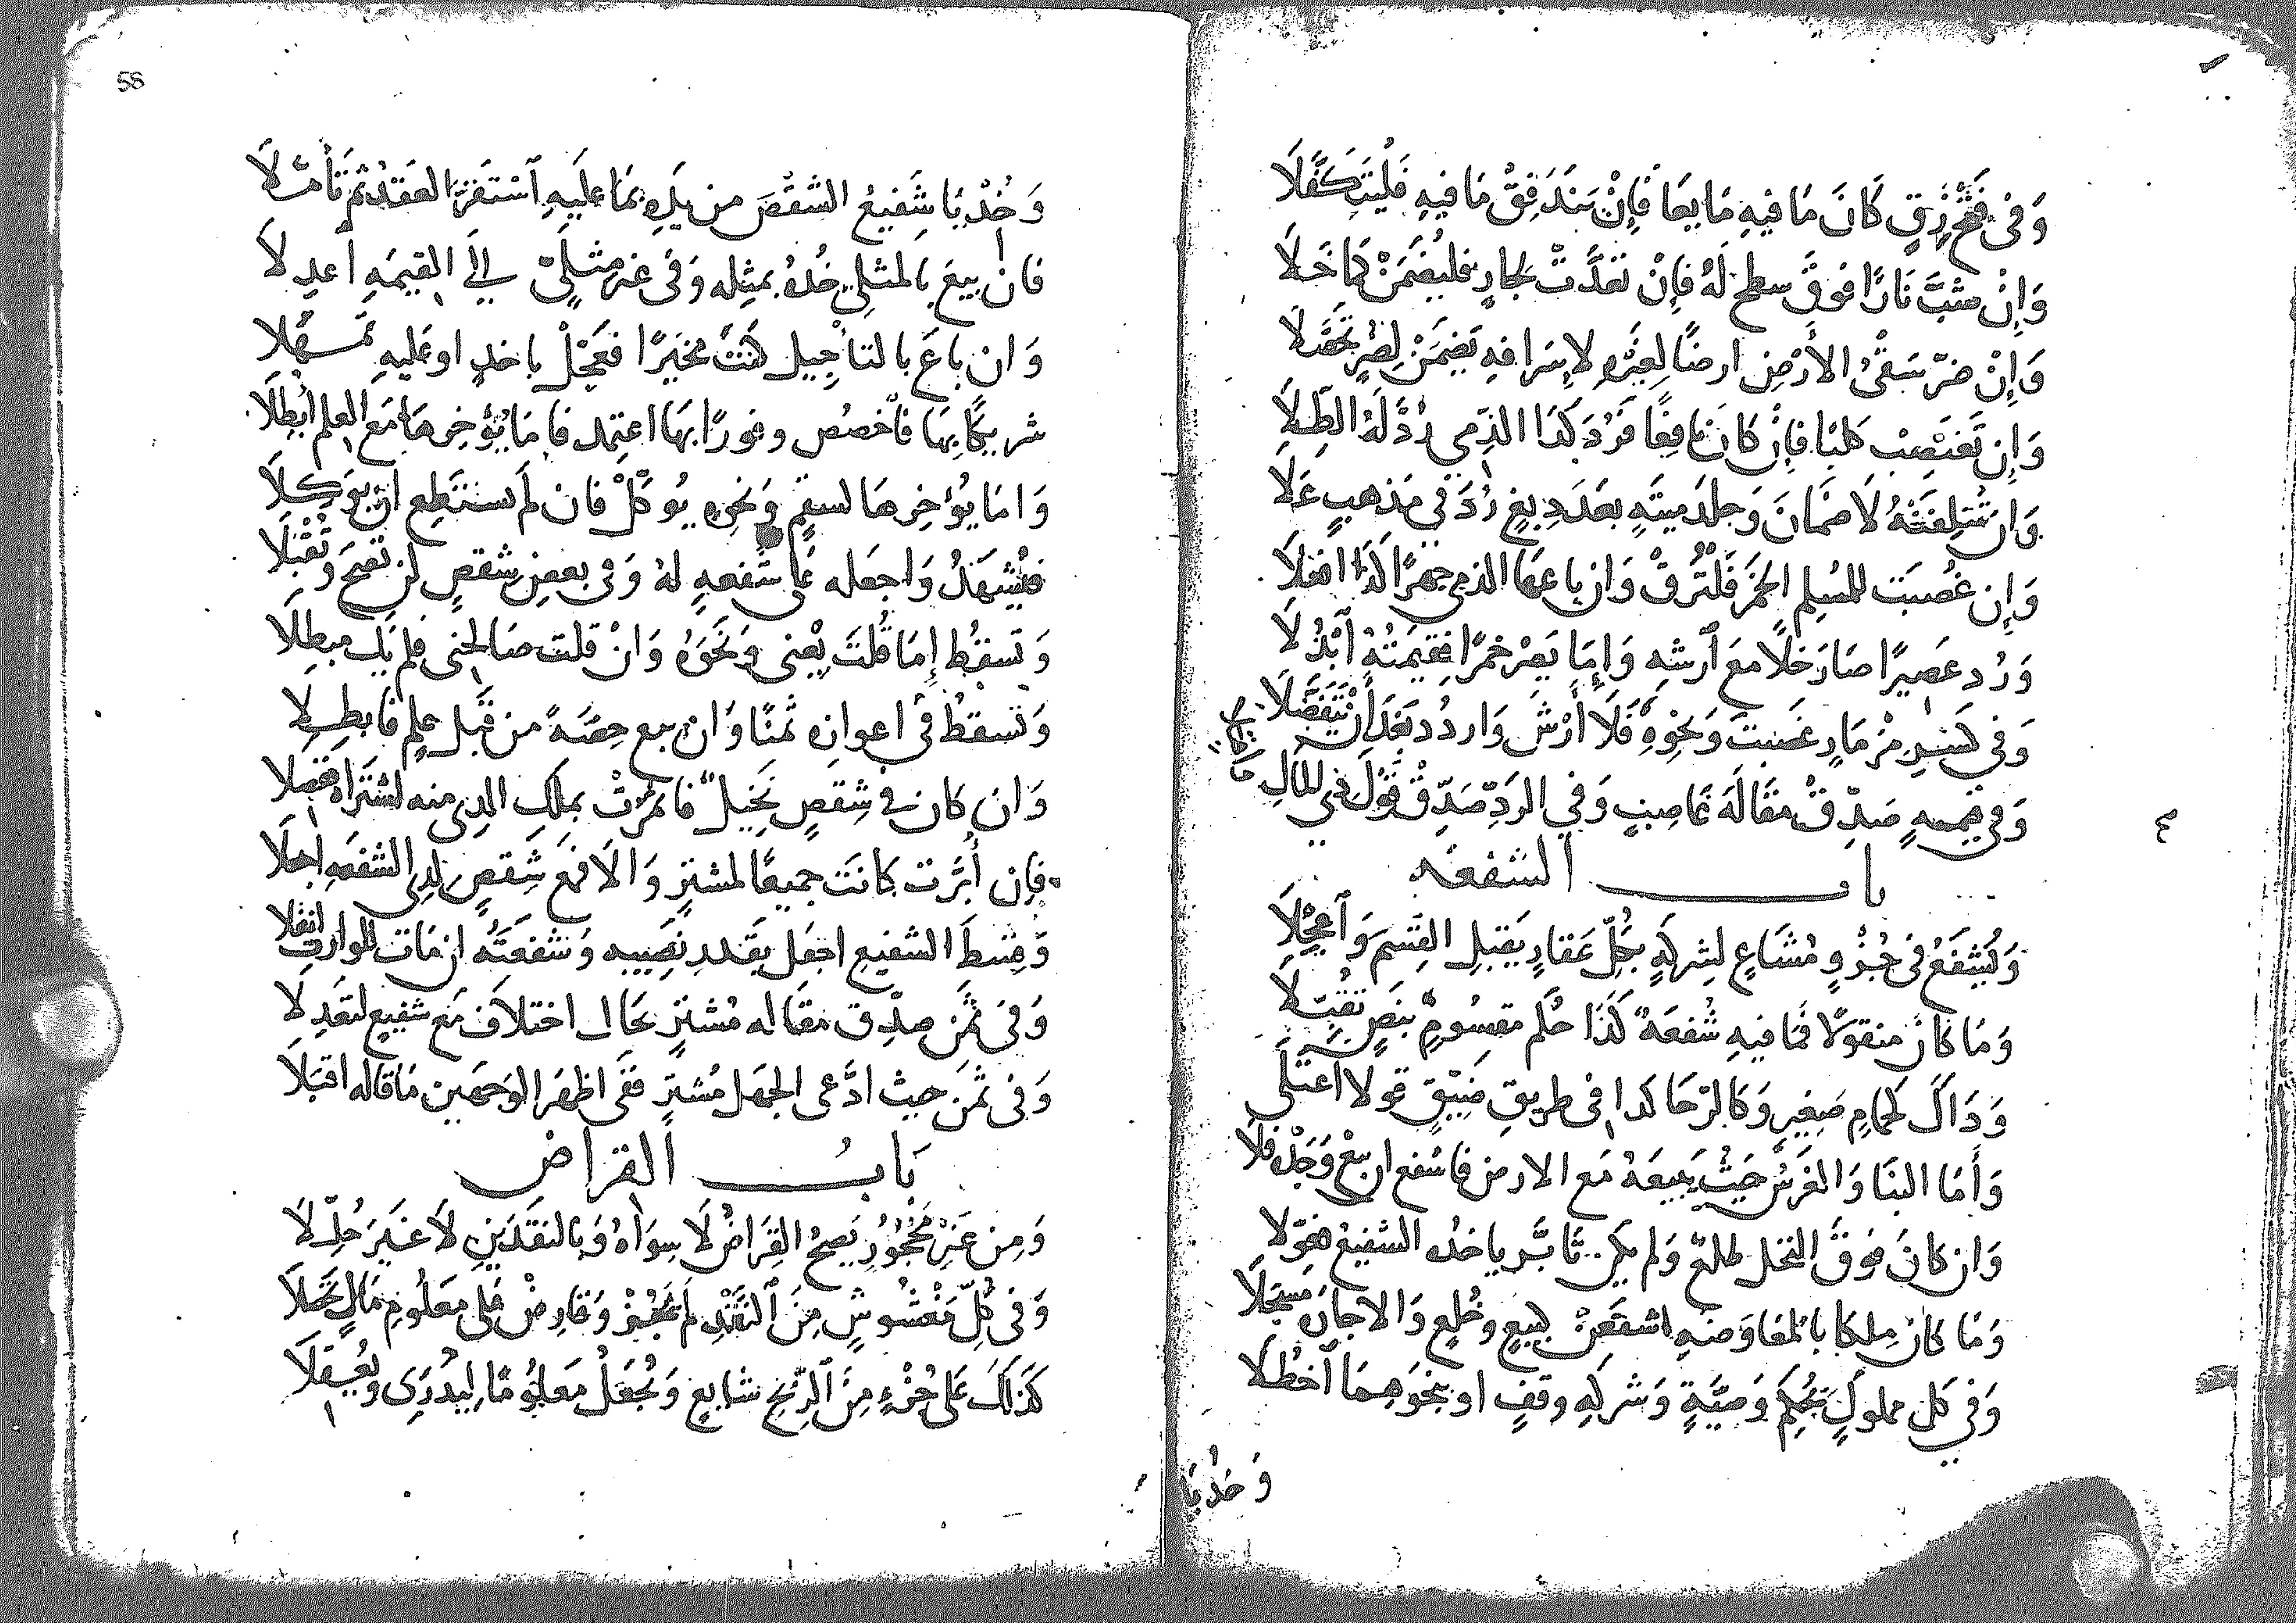 وَفِي فَتْحِ زِقٍّ كَانَ مَا فِيهِ مَايعًا فَإِنْ يَندَفِقْ مَا فِيهِ فَلْيَتَكَفَّلَا
وَإِنْ شبَّ نَارًا فوقَ سطحٍ لَهُ فَإِنْ تَعَدَّتْ لجارٍ فليضمَنْ كما خَلَا
وَإِنْ ضرّ سَقْيُ الأَرْضِ ارضًا لِغَيْرِهِ لإِسرافهِ يَضمَنْ لِضرٍ تَحَصَّلَا
وَإِن تَغتَصِبْ كلبًا فإن كَانَ نَافِعًا فَرُدَّ كَذَا الذمي رُدَّ لَهُ الطِّلَا
وَان تُتلِفَنْهُ لَا ضمَانَ وَجلدَ ميتَةٍ بعَدَ دِبغٍ رُدَّ في مَذهبٍ عَلَا
وَإِن غُصبَت للمُسلِمِ الخمَرُ فَلْتُرَقْ وَان باعهَا الذمي جهرًا كَذَا افعَلَا
وَرُد عَصِيرًا صَارَ خَلًا معَ ٱرشِهِ وَإِمَا يَصِرْ خمرًا فقِيمَتُهُ ٱبْذُلَا
وَفي كَسْرِ مِزْمَارٍ غَصَبتَ وَنحْوِهِ فَلَا أَرْشَ وَاردُد بَعْدَ أَن تَتَفَضَّلَا
وَفي قيمهٍ صَدِّقْ مقَالَةَ غَاصِبٍ وَفي الردِّ صَدِّقْ قَوْلَ ذي المَالِ
بابُ الشفعَه
وَيُشفَعُ فى جُزْءٍ مُشَاعٍ لِشركَةٍ بكُلِّ عَقارٍ يَقبَلِ القَسمَ وَٱعجِلَا
وَمَا كَانَ منقولًا فمَا فيهِ شُفعَةٌ كَذَا حُكم مقسُومٍ بنَصٍ تقُبِّلَا
وَذَاكَ كَحمامٍ صَغِيرٍ وَكَالرّحَا كذا فى طريقٍ ضَيِّقٍ قولا اعتَلَى
وَأَمَا البنَا وَالغَرسُ حَيثُ يَبيعَهُ مَع الارض فاشفع ان بيعَ وَحْدَهُ فلَا
وَان كانَ فوقَ النخل طلعٌ وَلم يكن تَأبَّر ياخذه الشفيعُ فحَوِّلا
وَمَا كانَ مِلكا بالمعَاوَضَهِ اشفعَنْ لبيعٍ وخُلعٍ وَالاجارَه مسجَلَا
وَفي كل مملوكٍ بحُكمِ وَصيَّةٍ وَشركهِ وقفٍ او بنحوَهِمَا ٱحظُلَا
وَخُذيَا
58
وَخُذ يَا شَفيعُ الشقْصَ من يَدِهِ بمَا عَلَيهِ ٱسْتَقرَّ العَقدُ ثُم تَأمَّلَا
فان بيعَ بالمثلي خُذهُ بمثِلِه وَفي غيرِ مثلِيٍّ إلى القيمَهِ اعدِلَا
وَان باعَ بالتأجِيل كنتَ مخَيَرًا فعَجِّلْ باخذٍ او عَليهِ تمَهَّلا
شريكًا بهَا فَٱخصُص وفورًا بهَا اعتمِد فامَا يُؤخِرهَا مَع العلم ابطِلَا
وَامَا يُؤخِرهَا لسقمٍ وَنحوِهِ يُوَكِّلْ فان لم يستَطِع ان يوَكِّلَا
فلْيُشهِدْ وَاجعَله عَلى شُفعهٍ لهُ وَفي بعضِ شِقصٍ لن تصَحَ وَتُقْبَلَا
وَتَسقُط إِمَا قُلتَ بِعْنى وَنَحوَهُ وَانْ قلت صَالحنى فلم يَك مبطِلَا
وَتَسقطُ في اعوانهِ ثَمنًا وَان يبع حِصَّةً من قَبل علمٍ فابطِلَا
وَان كان في شِقصٍ نَخيلٌ فاثمرَتْ بملك الذى منه اشترَاهُ ففصِلَا
فإن أُبِّرَت كانَت جميعًا لمشترٍ وَالا فمَع شِقصٍ لذي الشفعَهِ اجعلَا
وَقِسطَ الشفيعِ اجعَل بقَدرِ نَصِيبِهِ وَشفعَتُه ان مَات للوارث انقلا
وَفى ثمَنٍ صدِّق مقَاله مُشترٍ بحَال اختلَافٍ مَع شفيعٍ لتَعدِلَا
وَفى ثمَنٍ حيث ادَّعى الجهَل مُشترٍ ففى اظهَر الوَجهَين مَا قاله اقبَلَا
بَابُ القراضْ
وَمِن غَيرِ مَحْجُورٍ يَصحُ القِرَاضُ لَا سِوَاهُ وَبالنَقدَيْنِ لَا غَيرَ حُلِّلَا
وَفى كُلِّ مَغْشُوشٍ مِنَ ٱلنَّقْدِ لَم يجُزْ وَقارِضْ عَلى مَعلُومِ مَالٍ تَحَصَّلَا
كَذلكَ عَلى جُزْءٍ مِنَ ٱلرِّبْحِ شَايعٍ وَتُجعَلُ مَعلُومًا لِيُدْرَى وَيُعْقَلَا